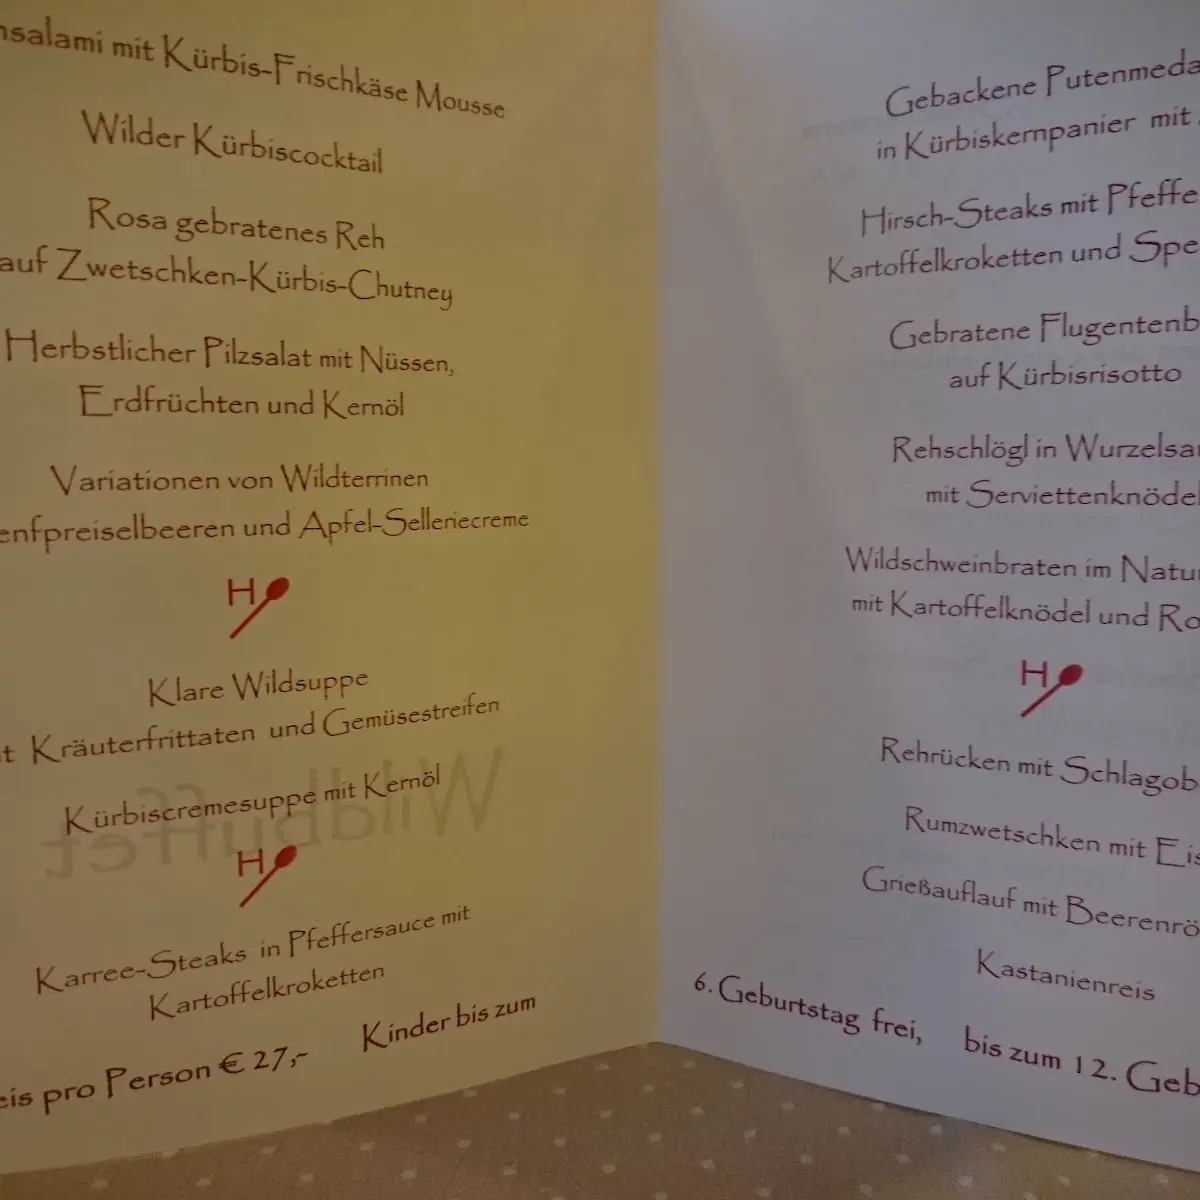 mit Kürbis-Frischkäse Mousse
Wilder Kürbiscocktail
Rosa gebratenes Reh
auf Zwetschken-Kürbis-Chutney
Herbstlicher Pilzsalat mit Nüssen,
Erdfrüchten und Kernöl
Variationen von Wildterrinen
enfpreiselbeeren und Apfel-Selleriecreme
H
Klare Wildsuppe
t Kräuterfrittaten und Gemüsestreifen
Kürbiscremesuppe mit Kernöl
Wildbuffet
H
Karree-Steaks in Pfeffersauce mit
Kartoffelkroketten
eis pro Person € 27,- Kinder bis zum
Gebackene Putenmeda
in Kürbiskernpanier mit
Hirsch-Steaks mit Pfeffe
Kartoffelkroketten und Spe
Gebratene Flugentenb
auf Kürbisrisotto
Rehschlögl in Wurzelsa
mit Serviettenknödel
Wildschweinbraten im Natu
mit Kartoffelknödel und Ro
H
Rehrücken mit Schlagob
Rumzwetschken mit Eis
Grießauflauf mit Beerenrö
Kastanienreis
6. Geburtstag frei, bis zum 12. Geb